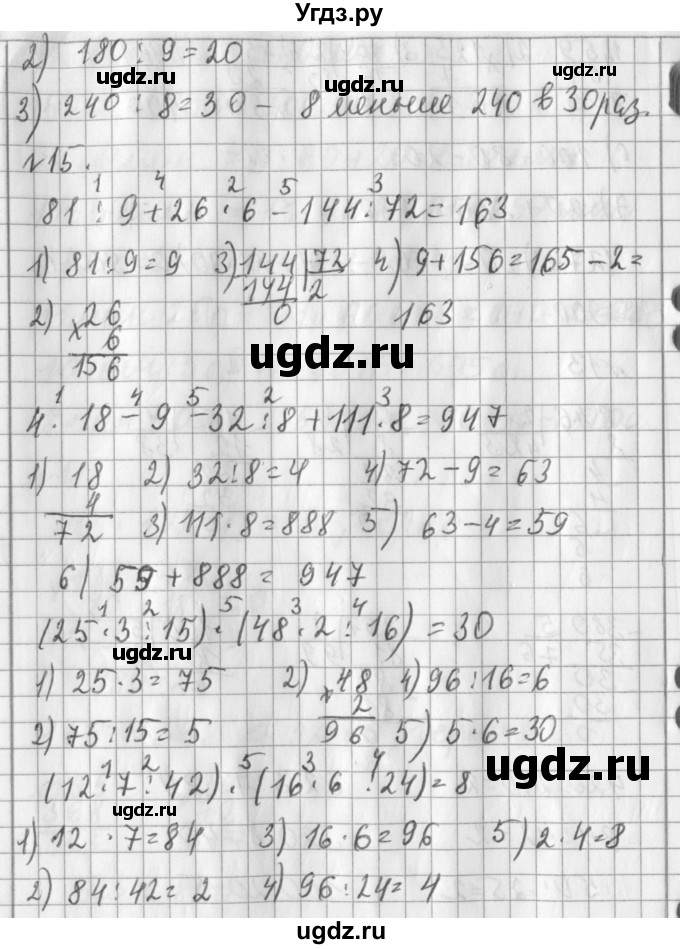 Угдз.ру
2) 180 : 9 = 20
ugdz.ru ugdz.ru
3) 240 : 8 = 30 – 8 меньше 240 в 30 раз.
№15.
1 4 2 5 3
81 : 9 + 26 · 6 – 144 : 72 = 163
1) 81 : 9 = 9 3) 144 | 72 4) 9 + 156 = 165 – 2 =
144 2
2) × 26 0 163
6
156
ugdz.ru
1 4 5 2 3
4 · 18 – 9 – 32 : 8 + 111 · 8 = 947
1) 18 2) 32 : 8 = 4 4) 72 – 9 = 63
4
72 3) 111 · 8 = 888 5) 63 – 4 = 59
6) 59 + 888 = 947
1 2 5 3 4
(25 · 3 : 15) · (48 · 2 : 16) = 30
ugdz.ru
1) 25 · 3 = 75 2) × 48 4) 96 : 16 = 6
2
2) 75 : 15 = 5 96 5) 5 · 6 = 30
ugdz.ru
1 2 5 3 4
(12 · 7 : 42) · (16 · 6 : 24) = 8
ugdz.ru
1) 12 · 7 = 84 3) 16 · 6 = 96 5) 2 · 4 = 8
2) 84 : 42 = 2 4) 96 : 24 = 4
ugdz.ru